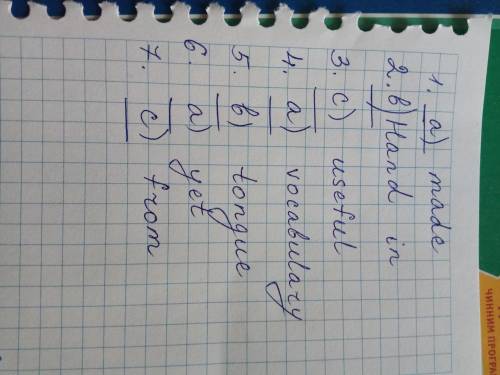 1. a) made
2. b) Hand in
3. c) useful
4. a) vocabulary
5. b) tongue
6. a) yet
7. c) from